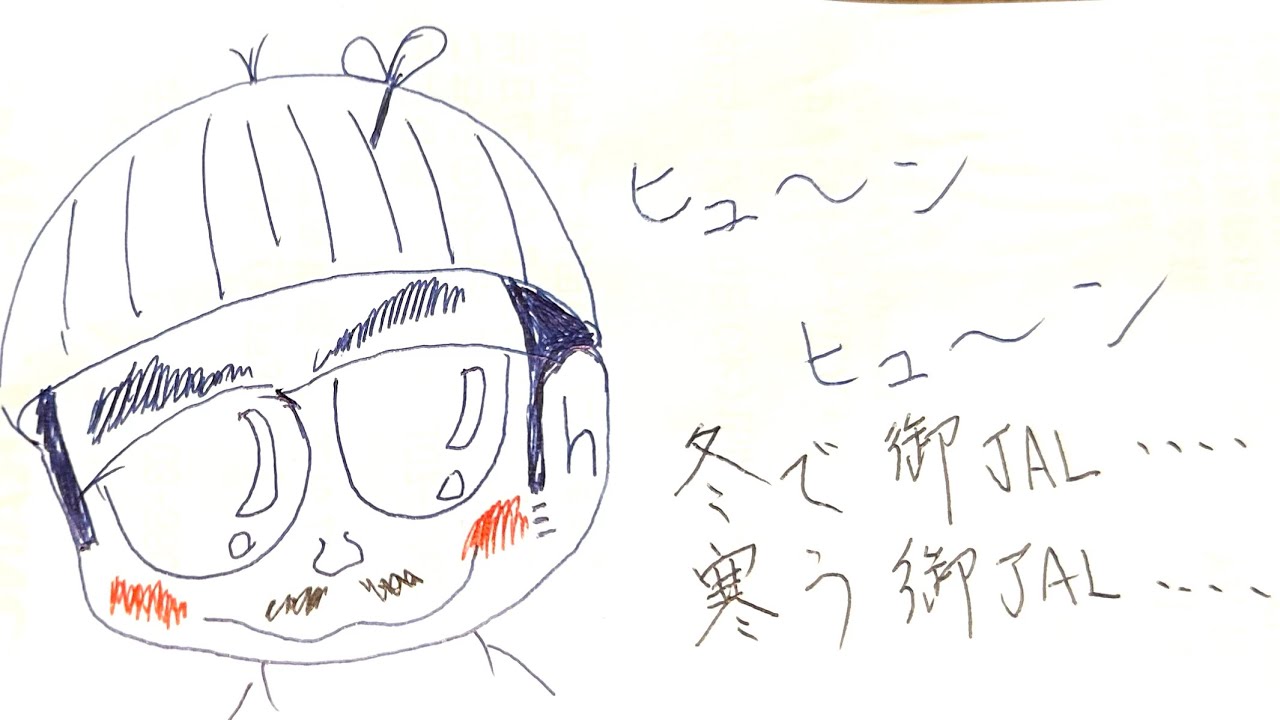 ヒュ〜ン
ヒュ〜ン
冬で御JAL‥‥
寒う御JAL‥‥